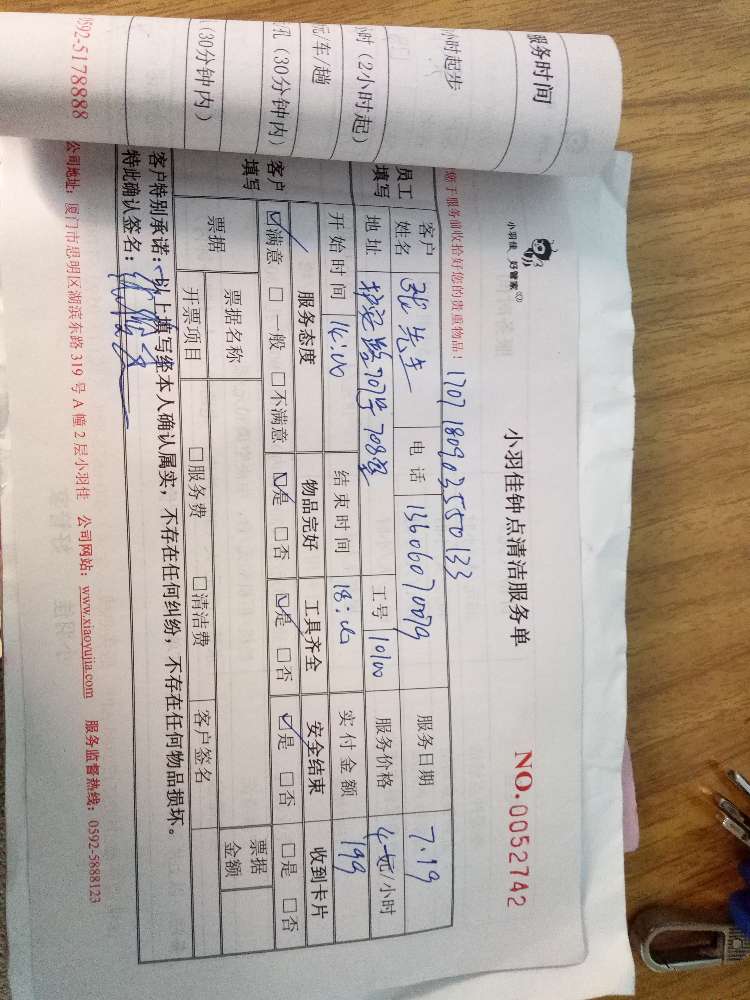 服务时间
小时起步
小时(2小时起)
元/车/趟
孔(30分钟内)
(30分钟内)
0592-5178888
小羽佳 好管家
小羽佳钟点清洁服务单
NO.0052742
您于服务前收拾好您的贵重物品!
1707180903550133
员工填写
客户姓名 张先生 电话 13606070079 服务日期 7.19
地址 707号708室 工号 10100 服务价格 元/小时
开始时间 14:00 结束时间 18:00 实付金额 199
客户填写
服务态度 物品完好 工具齐全 安全结束 收到卡片
☑满意 □一般 □不满意 ☑是 □否 ☑是 □否 ☑是 □否 □是 □否
票据 票据名称 票据金额
开票项目 □服务费 □清洁费 客户签名
客户特别承诺:以上填写经本人确认属实,不存在任何纠纷,不存在任何物品损坏。
特此确认签名:
公司地址:厦门市思明区湖滨东路319号A幢2层小羽佳 公司网站:www.xiaoyujia.com 服务监督热线:0592-5888123